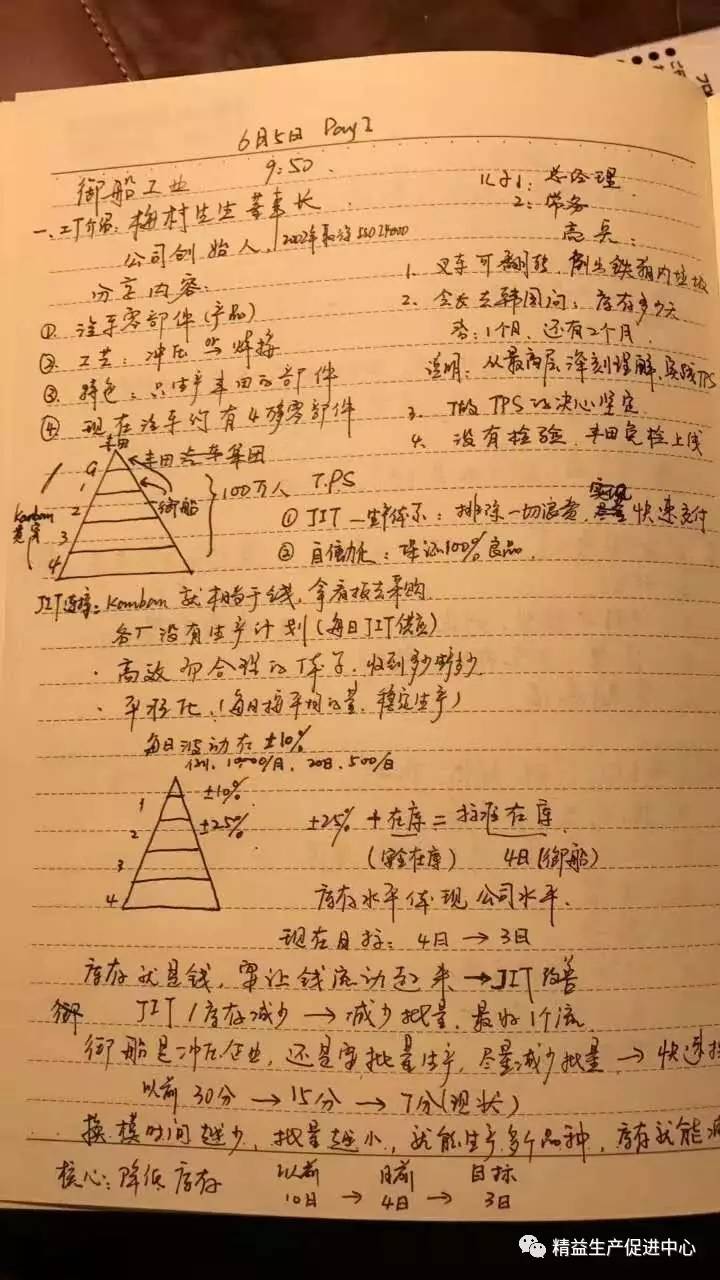 6月5日 Day2
9:50
御船工业
一、工厂介绍：梅村生生董事长
公司创始人，2002年
分享内容：
① 汽车零部件(产品)
② 工艺：冲压 焊接
③ 特色：只生产丰田的部件
④ 现在汽车约有4万零部件
儿子1：总经理
2：常务
亮点：
1. 叉车可翻转，倒出铁箱内垃圾
2. 会长去韩国问：库存多少天
答：1个月，还有2个月
说明：从最高层深刻理解、实践TPS
3. 做TPS的决心坚定
4. 没有检验，丰田免检上线
丰田
丰田汽车集团
御船
0
1
2
3
4
Kanban
100万人
TPS
① JIT—生产体系：排除一切浪费，实现快速交付
② 自働化：保证100%良品
JIT连接：Kanban就相当于钱，拿看板去采购
各厂没有生产计划(每日JIT供应)
· 高效而合理的体系，收到多少做多少
· 平准化：(每日按平均的量，稳定生产)
每日波动在±10%
例：10000/月，20日，500/日
1
2
3
4
±10%
±25%
±25% + 在库 = 标准在库
(安全在库) 4日(御船)
库存水平体现公司水平.
现在目标：4日 → 3日
库存就是钱，要让钱流动起来 → JIT改善
御 JIT/库存减少 → 减少批量，最好1个流
御船是冲压企业，还是要批量生产，尽量减少批量 → 快速
以前30分 → 15分 → 7分(现状)
换模时间越少，批量越小，就能生产多个品种，库存就能
核心：降低库存
以前 目前 目标
10日 → 4日 → 3日
精益生产促进中心